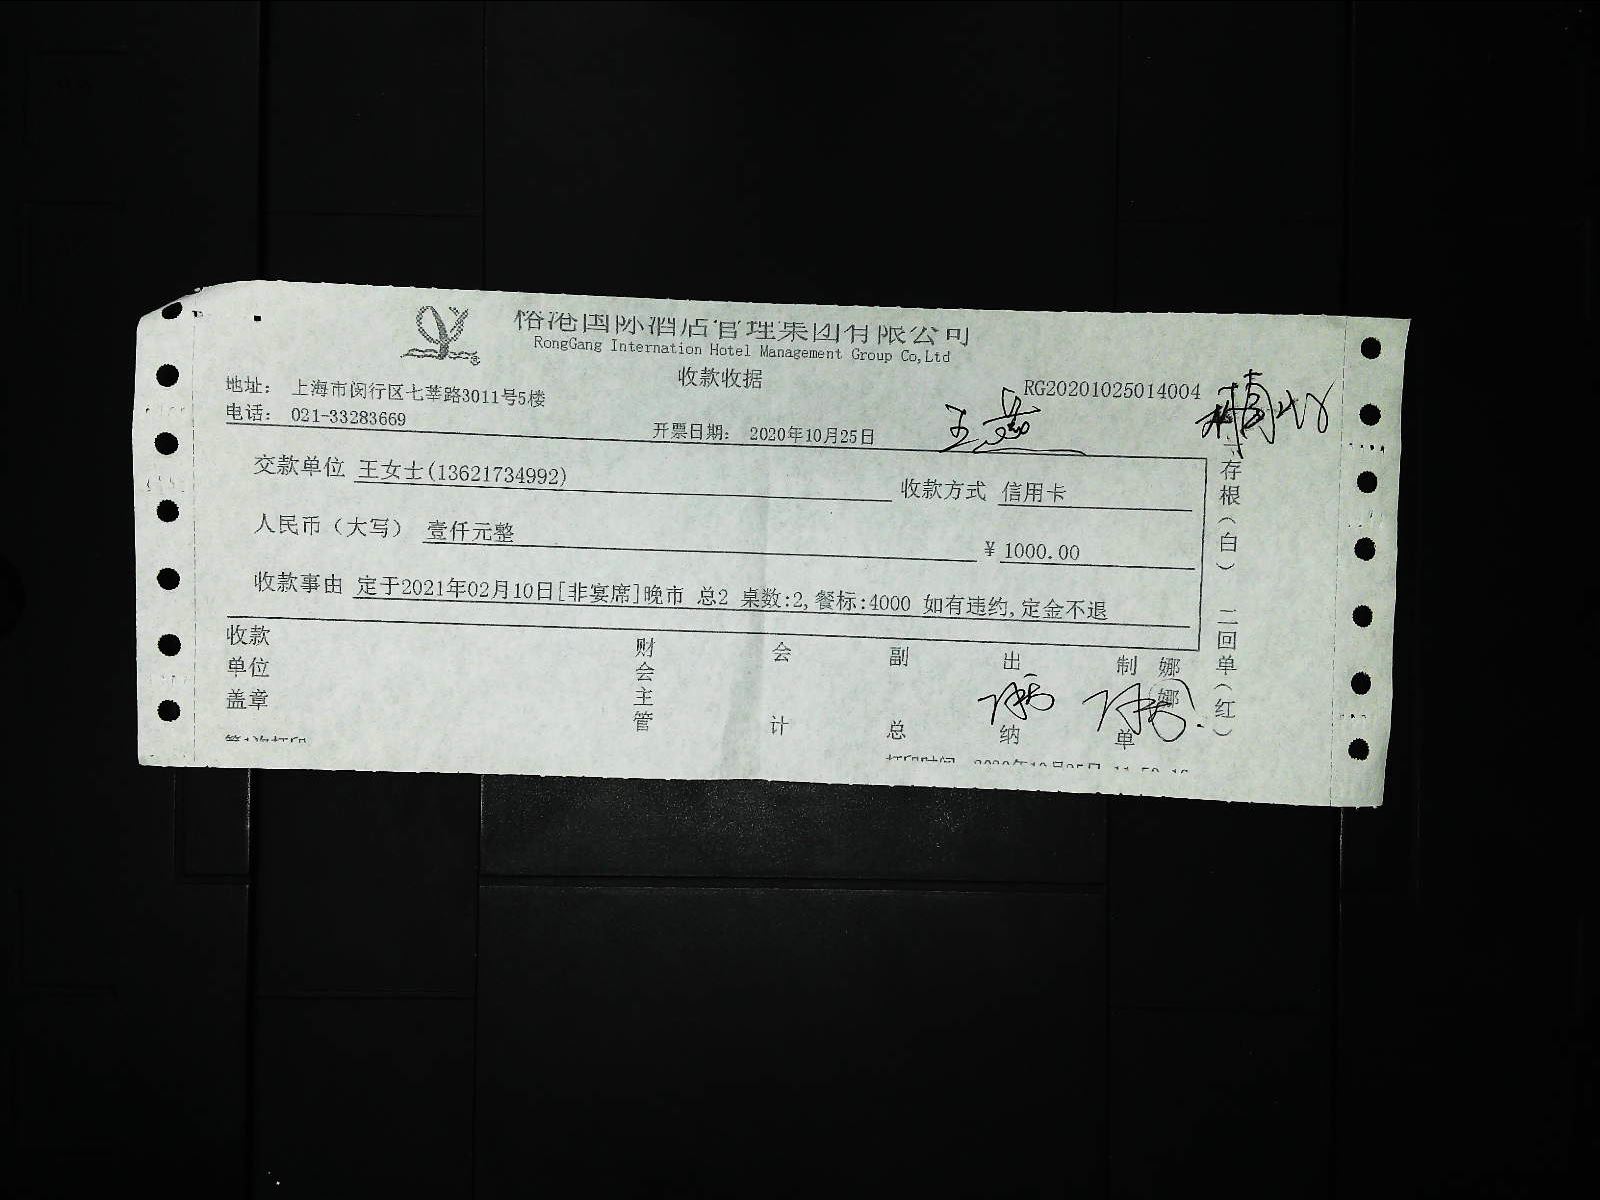 榕港国际酒店管理集团有限公司
RongGang Internation Hotel Management Group Co,Ltd
收款收据
地址： 上海市闵行区七莘路3011号5楼
RG20201025014004
电话： 021-33283669
开票日期： 2020年10月25日
王燕
交款单位 王女士(13621734992)
收款方式 信用卡
人民币（大写） 壹仟元整
¥ 1000.00
收款事由 定于2021年02月10日[非宴席]晚市 总2 桌数:2,餐标:4000 如有违约,定金不退
一存根（白） 二回单（红）
收款单位盖章
财会主管
会计
副总
出纳
制单
娜娜
第1次打印
打印时间 2020年10月25日 11:50:16